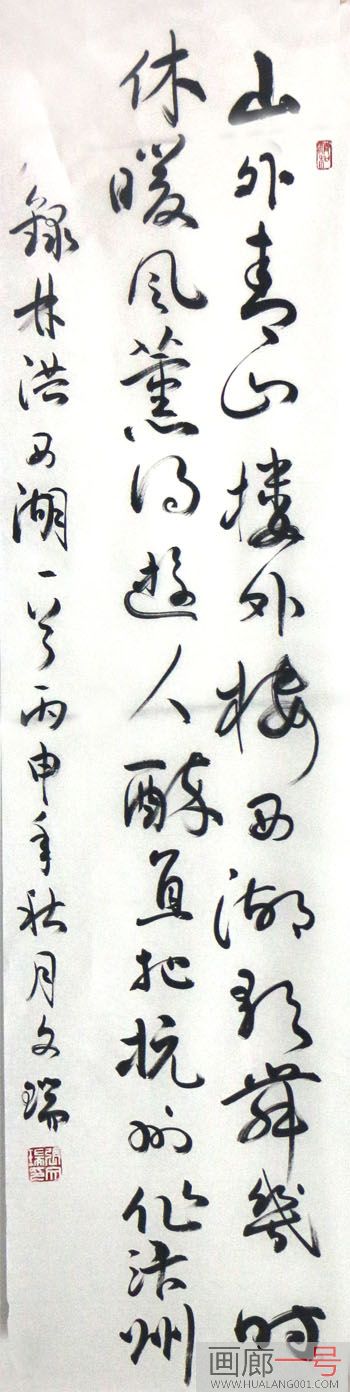 山外青山楼外楼西湖歌舞幾时
休暖风薰得遊人醉直把杭州作汴州
錄林洪西湖一首丙申年秋月文瑞
画廊一号
WWW.HUALANG001.COM